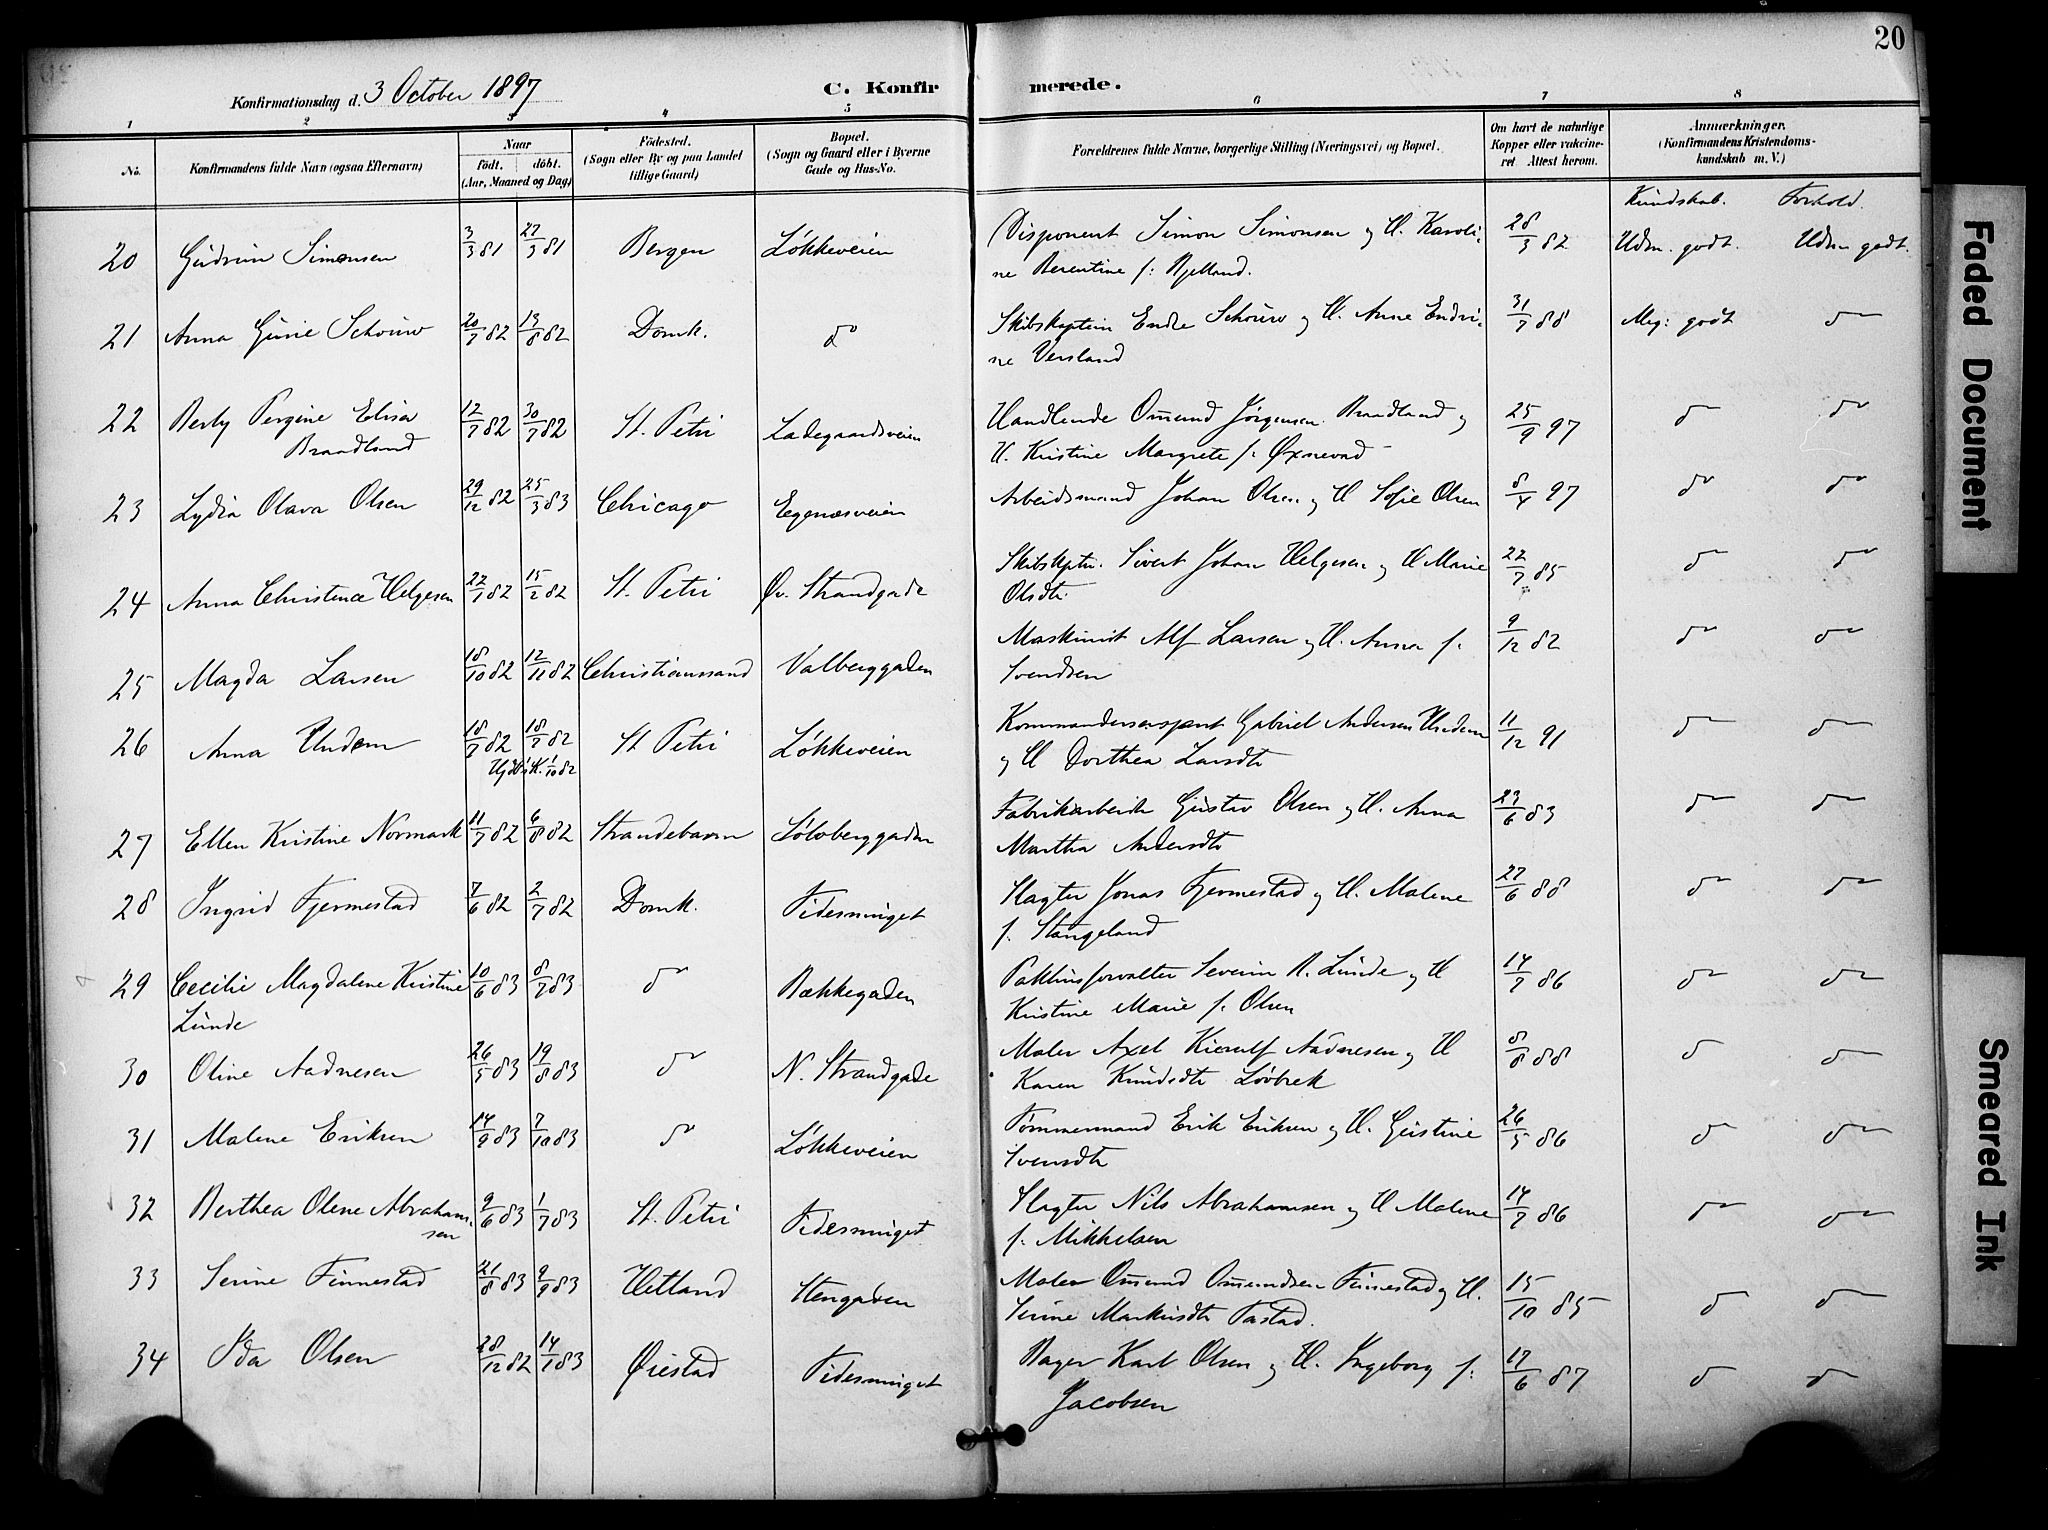 20
Konfirmationsdag d. 3 October 1897 C. Konfirmerede.
1 2 3 4 5 6 7 8
No. Konfirmandens fulde Navn (ogsaa Efternavn) Naar født. døbt. (Aar, Maaned og Dag) Fødested. (Sogn eller By og paa Landet tillige Gaard) Bopæl. (Sogn og Gaard eller i Byerne Gade og Hus-No. Forældrenes fulde Navne, borgerlige Stilling (Næringsvei) og Bopæl. Om havt de naturlige Kopper eller vaccineret Attest herom. Anmærkninger. (Konfirmandens Kristendomskundskab m. V.)
Kundskab. Forhold.
20 Gudrun Simonsen 3/3 81 27/3 81 Bergen Løkkeveien Disponent Simon Simonsen og H. Karoli- 28/3 82 Udm. godt. Udm godt.
ne Berentine f: Bjelland.
21 Anna Gurie Schouw 20/7 82 13/8 82 Domk. do Skibskaptein Endre Schouw og H. Anne Endri- 31/7 88 Meg: godt do
ne Versland
22 Berly Pergine Elisa 12/7 82 30/7 82 St. Petri Ladegaardsveien Handlende Omund Jørgensen Brandland og 25/9 97 do do
Brandland H. Kristine Margrete f. Øxnevad
23 Lydia Olava Olsen 29/12 82 25/3 83 Chicago Egenæsveien Arbeidsmand Johan Olsen og H Sofie Olsen 8/4 97 do do
24 Anna Christence Helgesen 22/1 82 15/2 82 St. Petri Øv. Strandgade Skibskptn. Sivert Johan Helgesen og H Marie 22/7 85 do do
Olsdtr
25 Magda Larsen 18/10 82 12/11 82 Christianssand Valberggaden Maskinist Alf Larsen og H. Anna f. 9/12 82 do do
Svendsen
26 Anna Undem 18/7 82 18/7 82 St Petri Løkkeveien Kommandersergeant Gabriel Andersen Undem 11/12 91 do do
Hjd. i K. 1/10 82 og H Dorthea Larsdtr
27 Ellen Kristine Normark 11/7 82 6/8 82 Strandebarm Sølvberggaden Fabrikarbeider Gustav Olsen og H. Anna 23/6 83 do do
Martha Andersdtr
28 Ingrid Fjermestad 7/6 82 2/7 82 Domk. Fidesminget Slagter Jonas Fjermestad og H. Malene 27/6 88 do do
f. Stangeland
29 Cecilie Magdalene Kristine 10/6 83 8/7 83 do Bækkegaden Pakhusforvalter Severin R. Lunde og H 14/7 86 do do
Lunde Kristine Marie f. Olsen
30 Oline Aadnesen 26/5 83 19/8 83 do N. Strandgade Maler Axel Kierulf Aadnesen og H 8/8 88 do do
Karen Knudsdtr Løvbrek
31 Malene Eriksen 14/9 83 7/10 83 do Løkkeveien Tømmermand Erik Eriksen og H. Gurstine 26/5 86 do do
Svensdtr
32 Berthea Olene Abraham- 9/6 83 1/7 83 St. Petri Fidesminget Slagter Nils Abrahamsen og H Malene 14/7 86 do do
sen f. Mikkelsen
33 Serine Finnestad 21/8 83 9/9 83 Hetland Stengaden Maler Omund Omundsen Finnestad og H. 15/10 85 do do
Serine Markusdtr Tastad.
34 Ida Olsen 28/12 82 14/1 83 Øiestad Fidesminget Bager Karl Olsen og H. Ingeborg f: 17/6 87 do do
Jacobsen
Faded Document
Smeared Ink